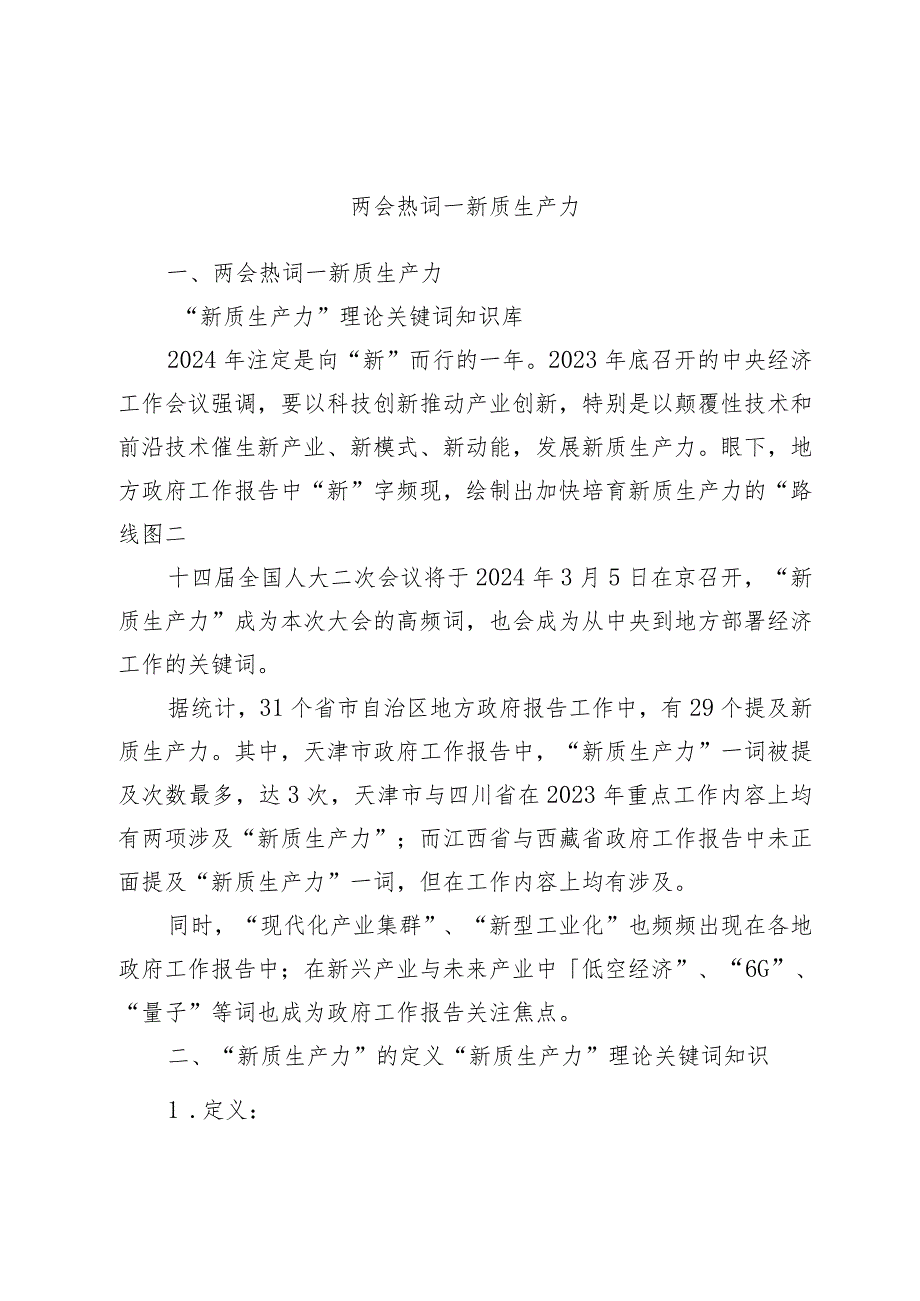 两会热词一新质生产力
一、两会热词一新质生产力
“新质生产力”理论关键词知识库
2024 年注定是向“新”而行的一年。2023 年底召开的中央经济
工作会议强调，要以科技创新推动产业创新，特别是以颠覆性技术和
前沿技术催生新产业、新模式、新动能，发展新质生产力。眼下，地
方政府工作报告中“新”字频现，绘制出加快培育新质生产力的“路
线图二
十四届全国人大二次会议将于 2024 年 3 月 5 日在京召开，“新
质生产力”成为本次大会的高频词，也会成为从中央到地方部署经济
工作的关键词。
据统计，31 个省市自治区地方政府报告工作中，有 29 个提及新
质生产力。其中，天津市政府工作报告中，“新质生产力”一词被提
及次数最多，达 3 次，天津市与四川省在 2023 年重点工作内容上均
有两项涉及“新质生产力”；而江西省与西藏省政府工作报告中未正
面提及“新质生产力”一词，但在工作内容上均有涉及。
同时，“现代化产业集群”、“新型工业化”也频频出现在各地
政府工作报告中；在新兴产业与未来产业中「低空经济”、“6G”、
“量子”等词也成为政府工作报告关注焦点。
二、“新质生产力”的定义“新质生产力”理论关键词知识
1 .定义：